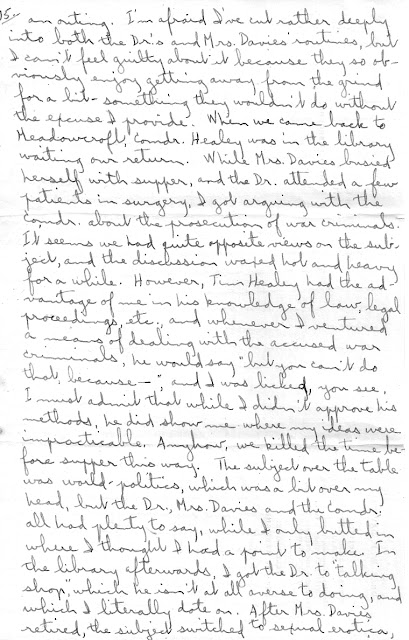 5.
an outing. I'm afraid I've cut rather deeply
into both the Dr.'s and Mrs. Davies' routines, but
I can't feel guilty about it because they so ob-
viously enjoy getting away from the grind
for a bit - something they wouldn't do without
the excuse I provide. When we came back to
Meadowcroft, Comdr. Healey was in the library
waiting our return. While Mrs. Davies busied
herself with supper, and the Dr. attended a few
patients in surgery, I got arguing with the
Comdr. about the prosecution of war criminals.
It seems we had quite opposite views on the sub-
ject, and the discussion waxed hot and heavy
for a while. However, Tim Healey had the ad-
vantage of me in his knowledge of law, legal
proceedings, etc., and whenever I ventured
a means of dealing with the accused war
criminals, he would say "but you can't do
that, because—", and I was licked, you see.
I must admit that while I didn't approve his
methods, he did show me where my ideas were
impracticable. Anyhow, we killed the time be-
fore supper this way. The subject over the table
was world-politics, which was a bit over my
head, but the Dr., Mrs. Davies and the Comdr.
all had plenty to say, while I only butted in
where I thought I had a point to make. In
the library afterwards, I got the Dr. to "talking
shop," which he isn't at all averse to doing, and
which I literally dote on. After Mrs. Davies
retired, the subject switched to sexual erotica,